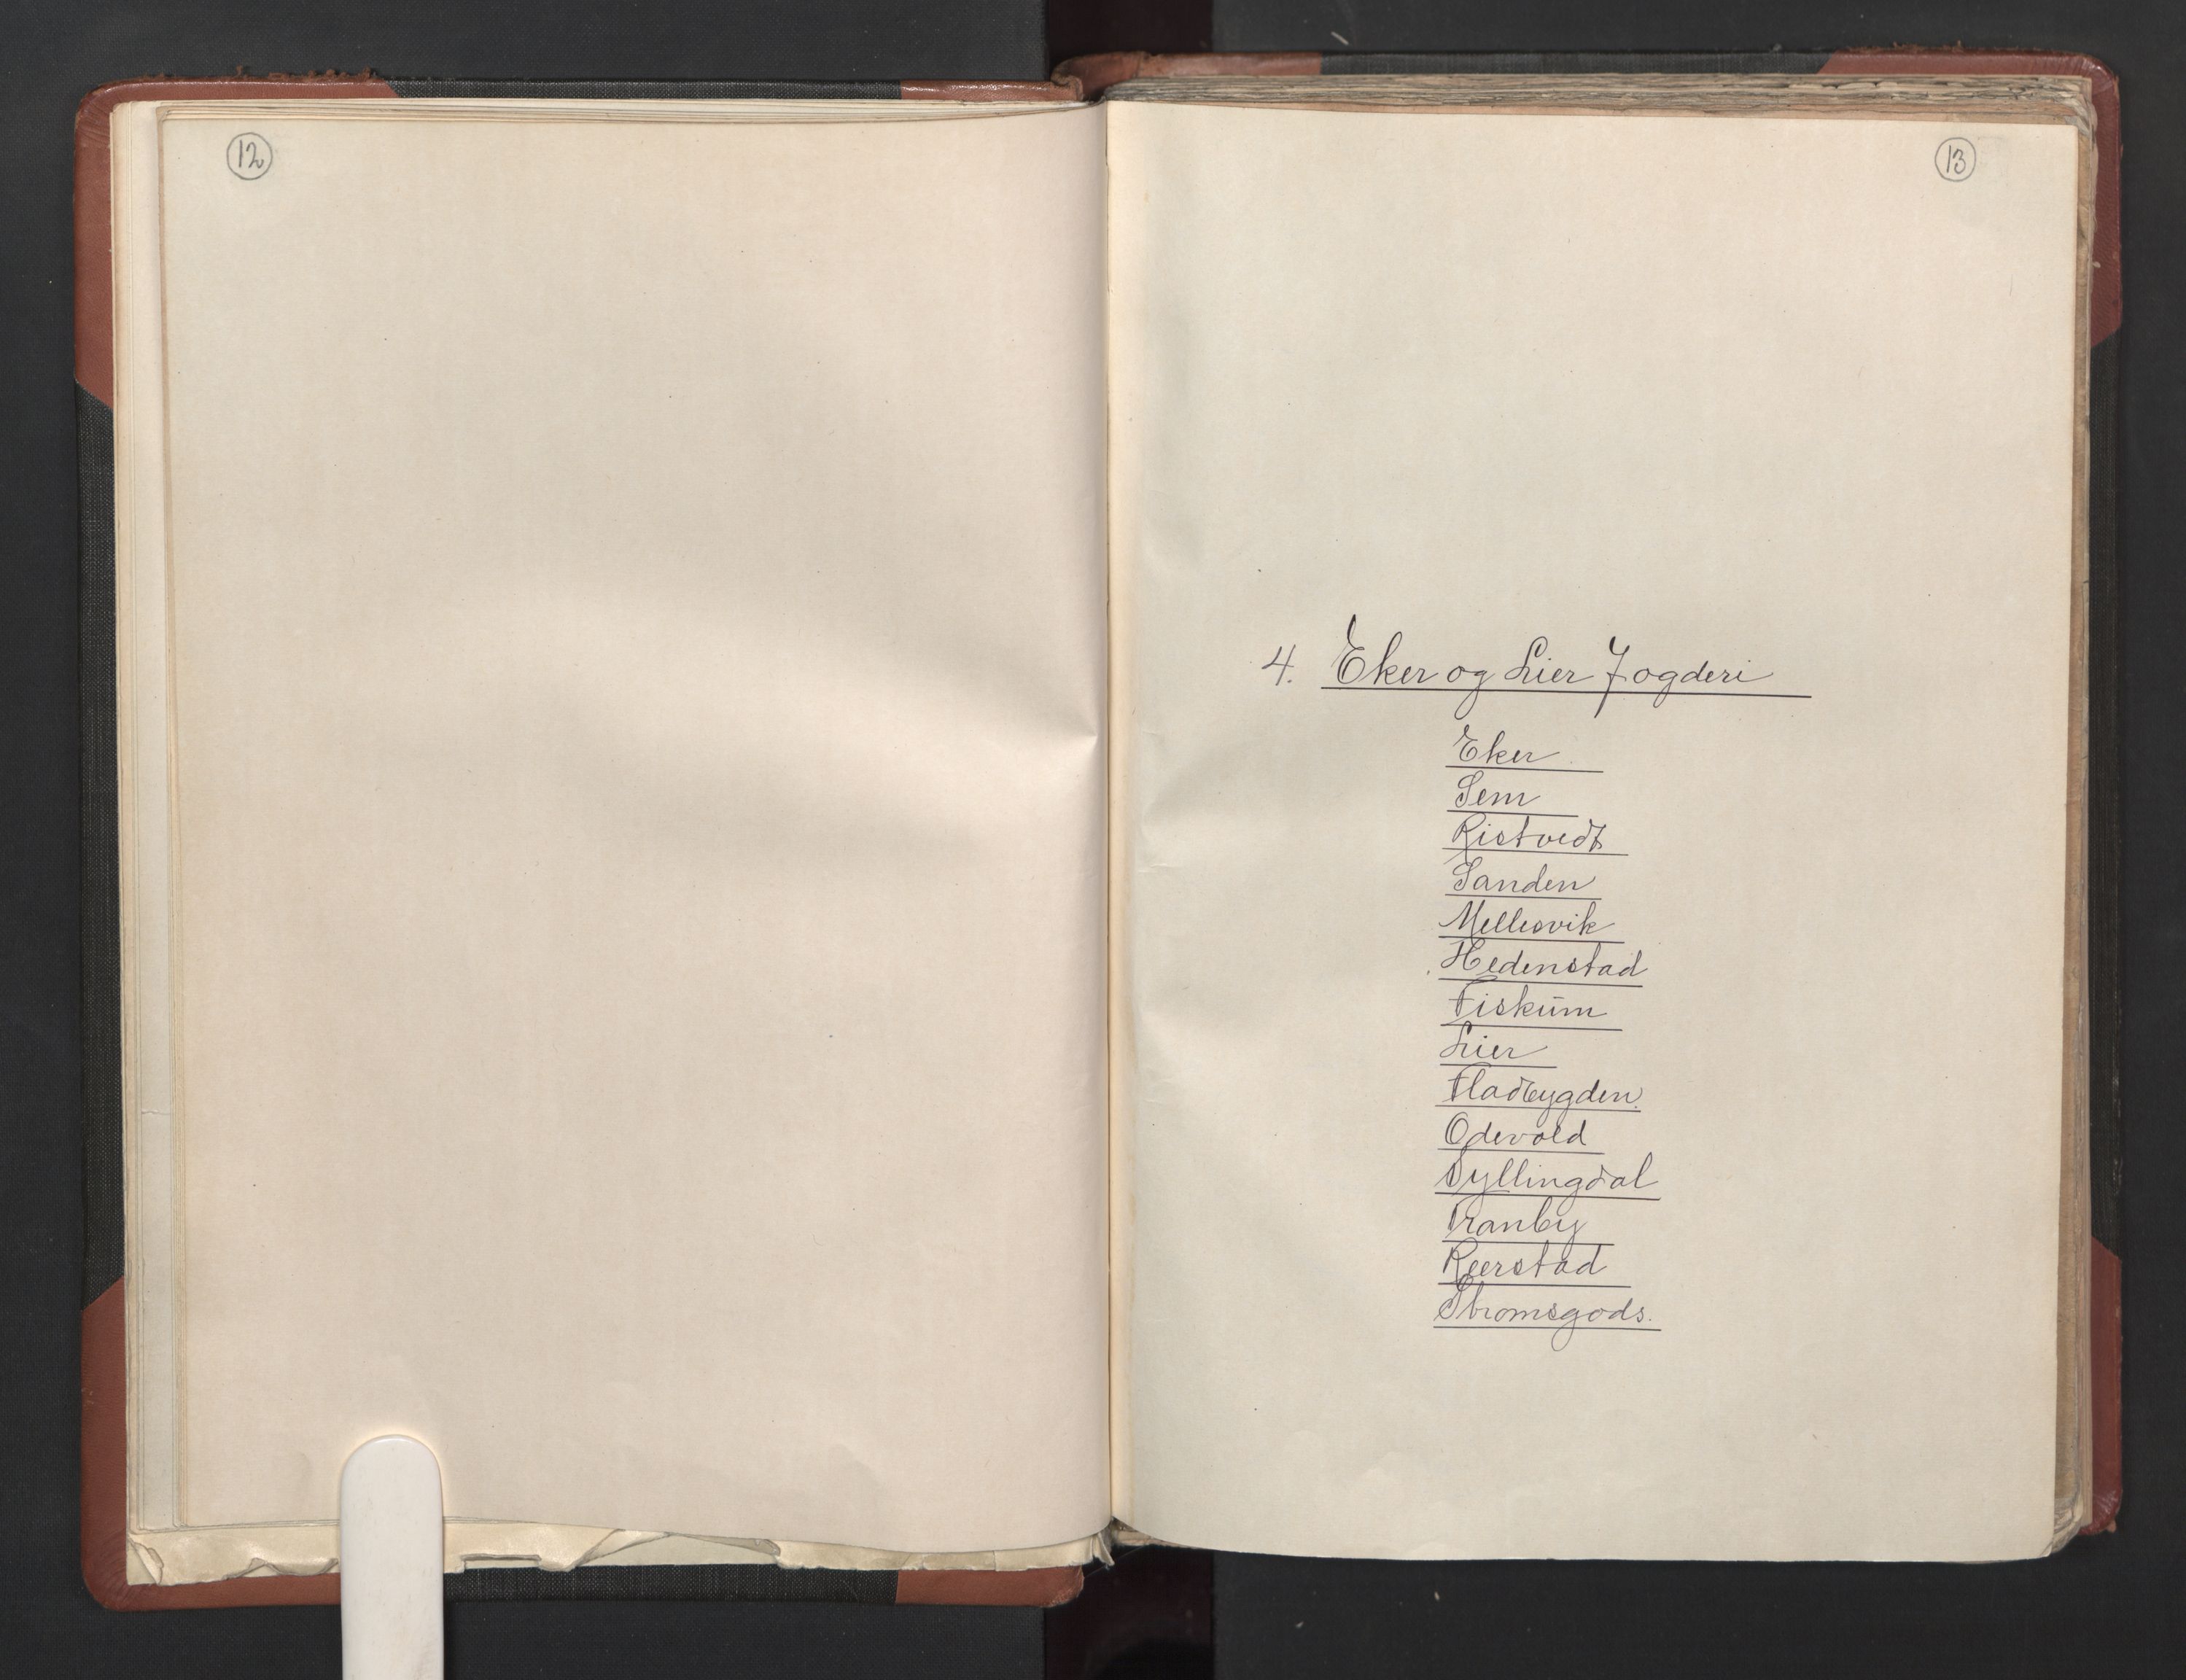 12
13
4. Eker og Lier Fogderi
Eker
Sem
Ristvedt
Sanden
Mellesvik
Hedenstad
Fiskum
Lier
Fladbygden.
Odevold
Syllingdal
Tranby
Reerstad
Stromsgods.